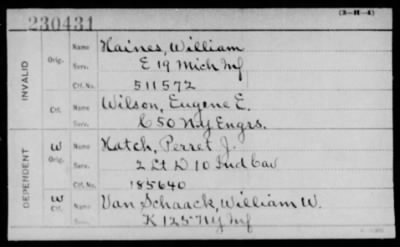 (3-H-4)
230431
INVALID
Orig.
Name Haines, William
Serv. E 19 Mich Inf
Ctf. No. 511572
Ctf.
Name Wilson, Eugene E.
Serv. C 50 N.Y Engrs.
DEPENDENT
W
Orig.
Name Hatch, Perret J.
Serv. 2 Lt D 10 Ind Cav
Ctf. No. 185640
W
Ctf.
Name Van Schaack, William W.
Serv. K 125 NY Inf